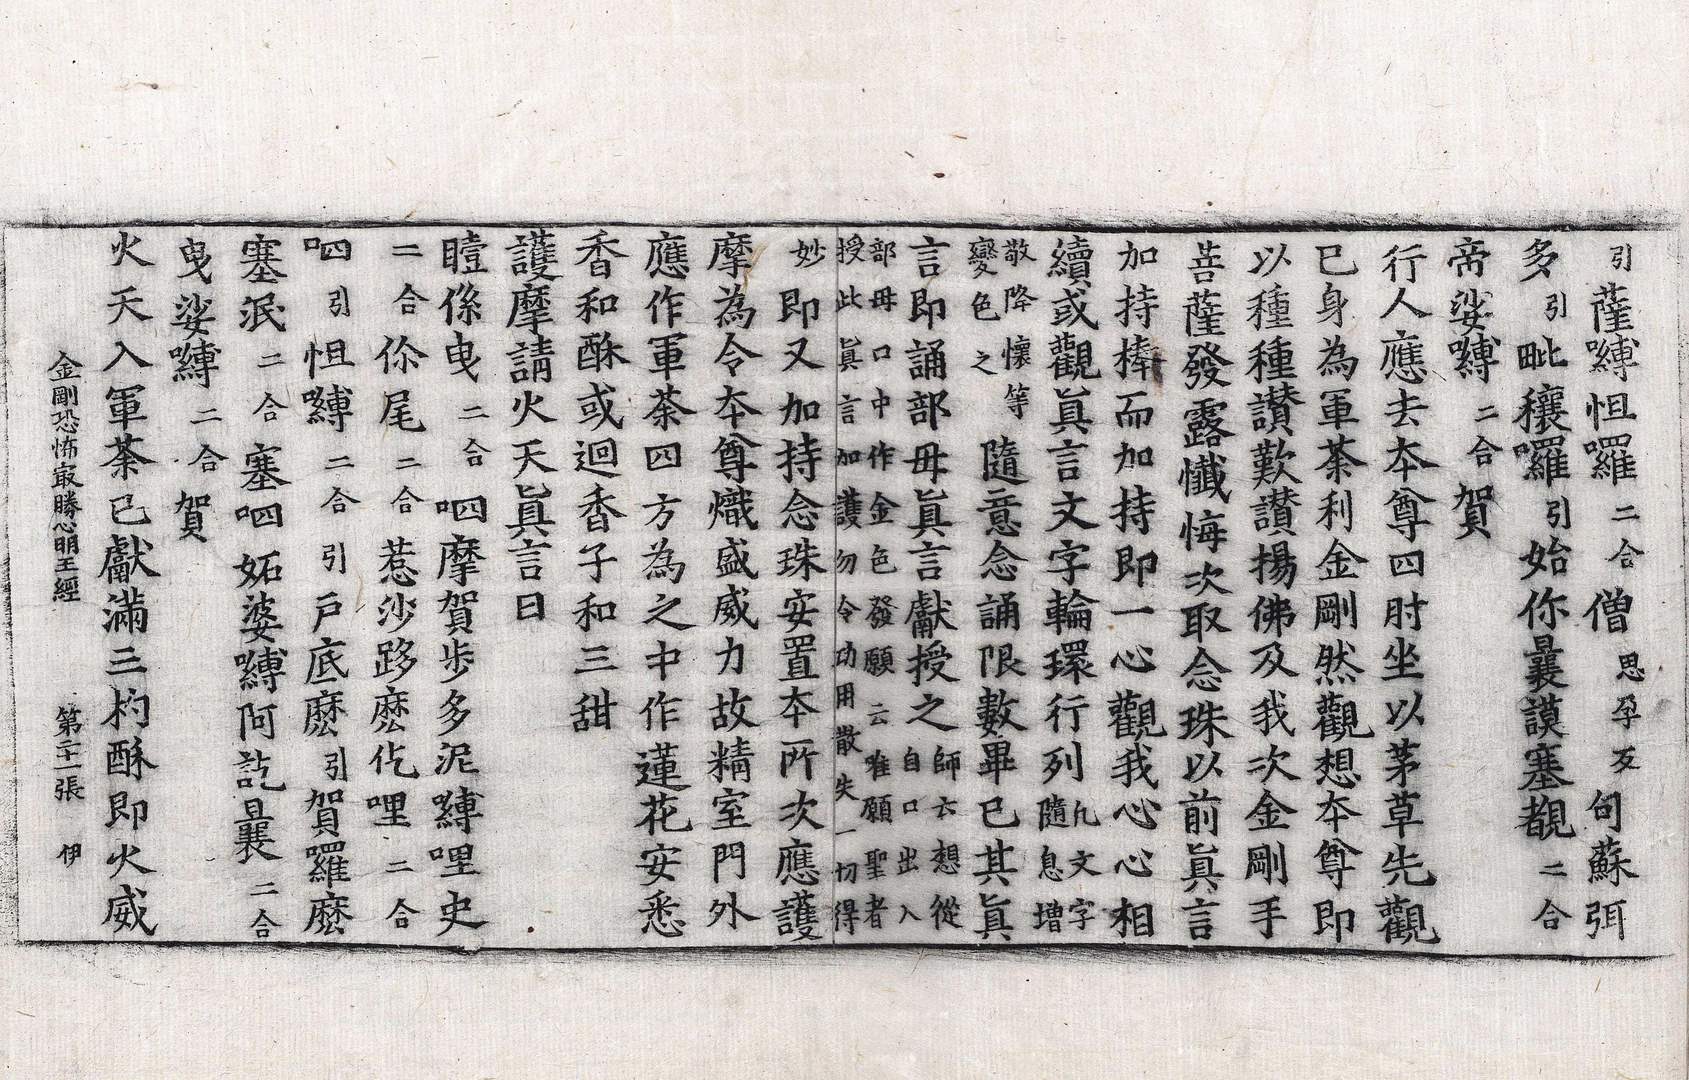 引薩嚩怛囉二合僧思孕反句蘇弭
多引毗穰囉引始你曩謨塞覩二合
帝娑嚩二合賀
行人應去夲尊四肘坐以茅草先觀
已身為軍荼利金剛然觀想夲尊即
以種種讃歎讃揚佛及我次金剛手
菩薩發露懺悔次取念珠以前眞言
加持捧而加持即一心觀我心心相
續或觀眞言文字輪環行列凡文字隨息增
敬降懷等變色之隨意念誦限數畢已其眞
言即誦部毋眞言獻授之師云想從自口出入
部毋口中作金色發願云唯願聖者授此眞言加護勿令功用散失一切得
妙即又加持念珠安置夲所次應護
摩為令夲尊熾盛威力故精室門外
應作軍荼四方為之中作蓮花安悉
香和酥或迴香子和三甜
護摩請火天眞言曰
曀係曳二合呬摩賀步多泥嚩哩史
二合你尾二合惹沙跢麽仡哩二合
呬引怛嚩二合引戸底麽引賀囉麽
塞泯二合塞呬妬婆嚩阿訖曩二合
曳娑嚩二合賀
火天入軍荼已獻滿三杓酥即火威
金剛恐怖最勝心明王經　第二十一張　伊